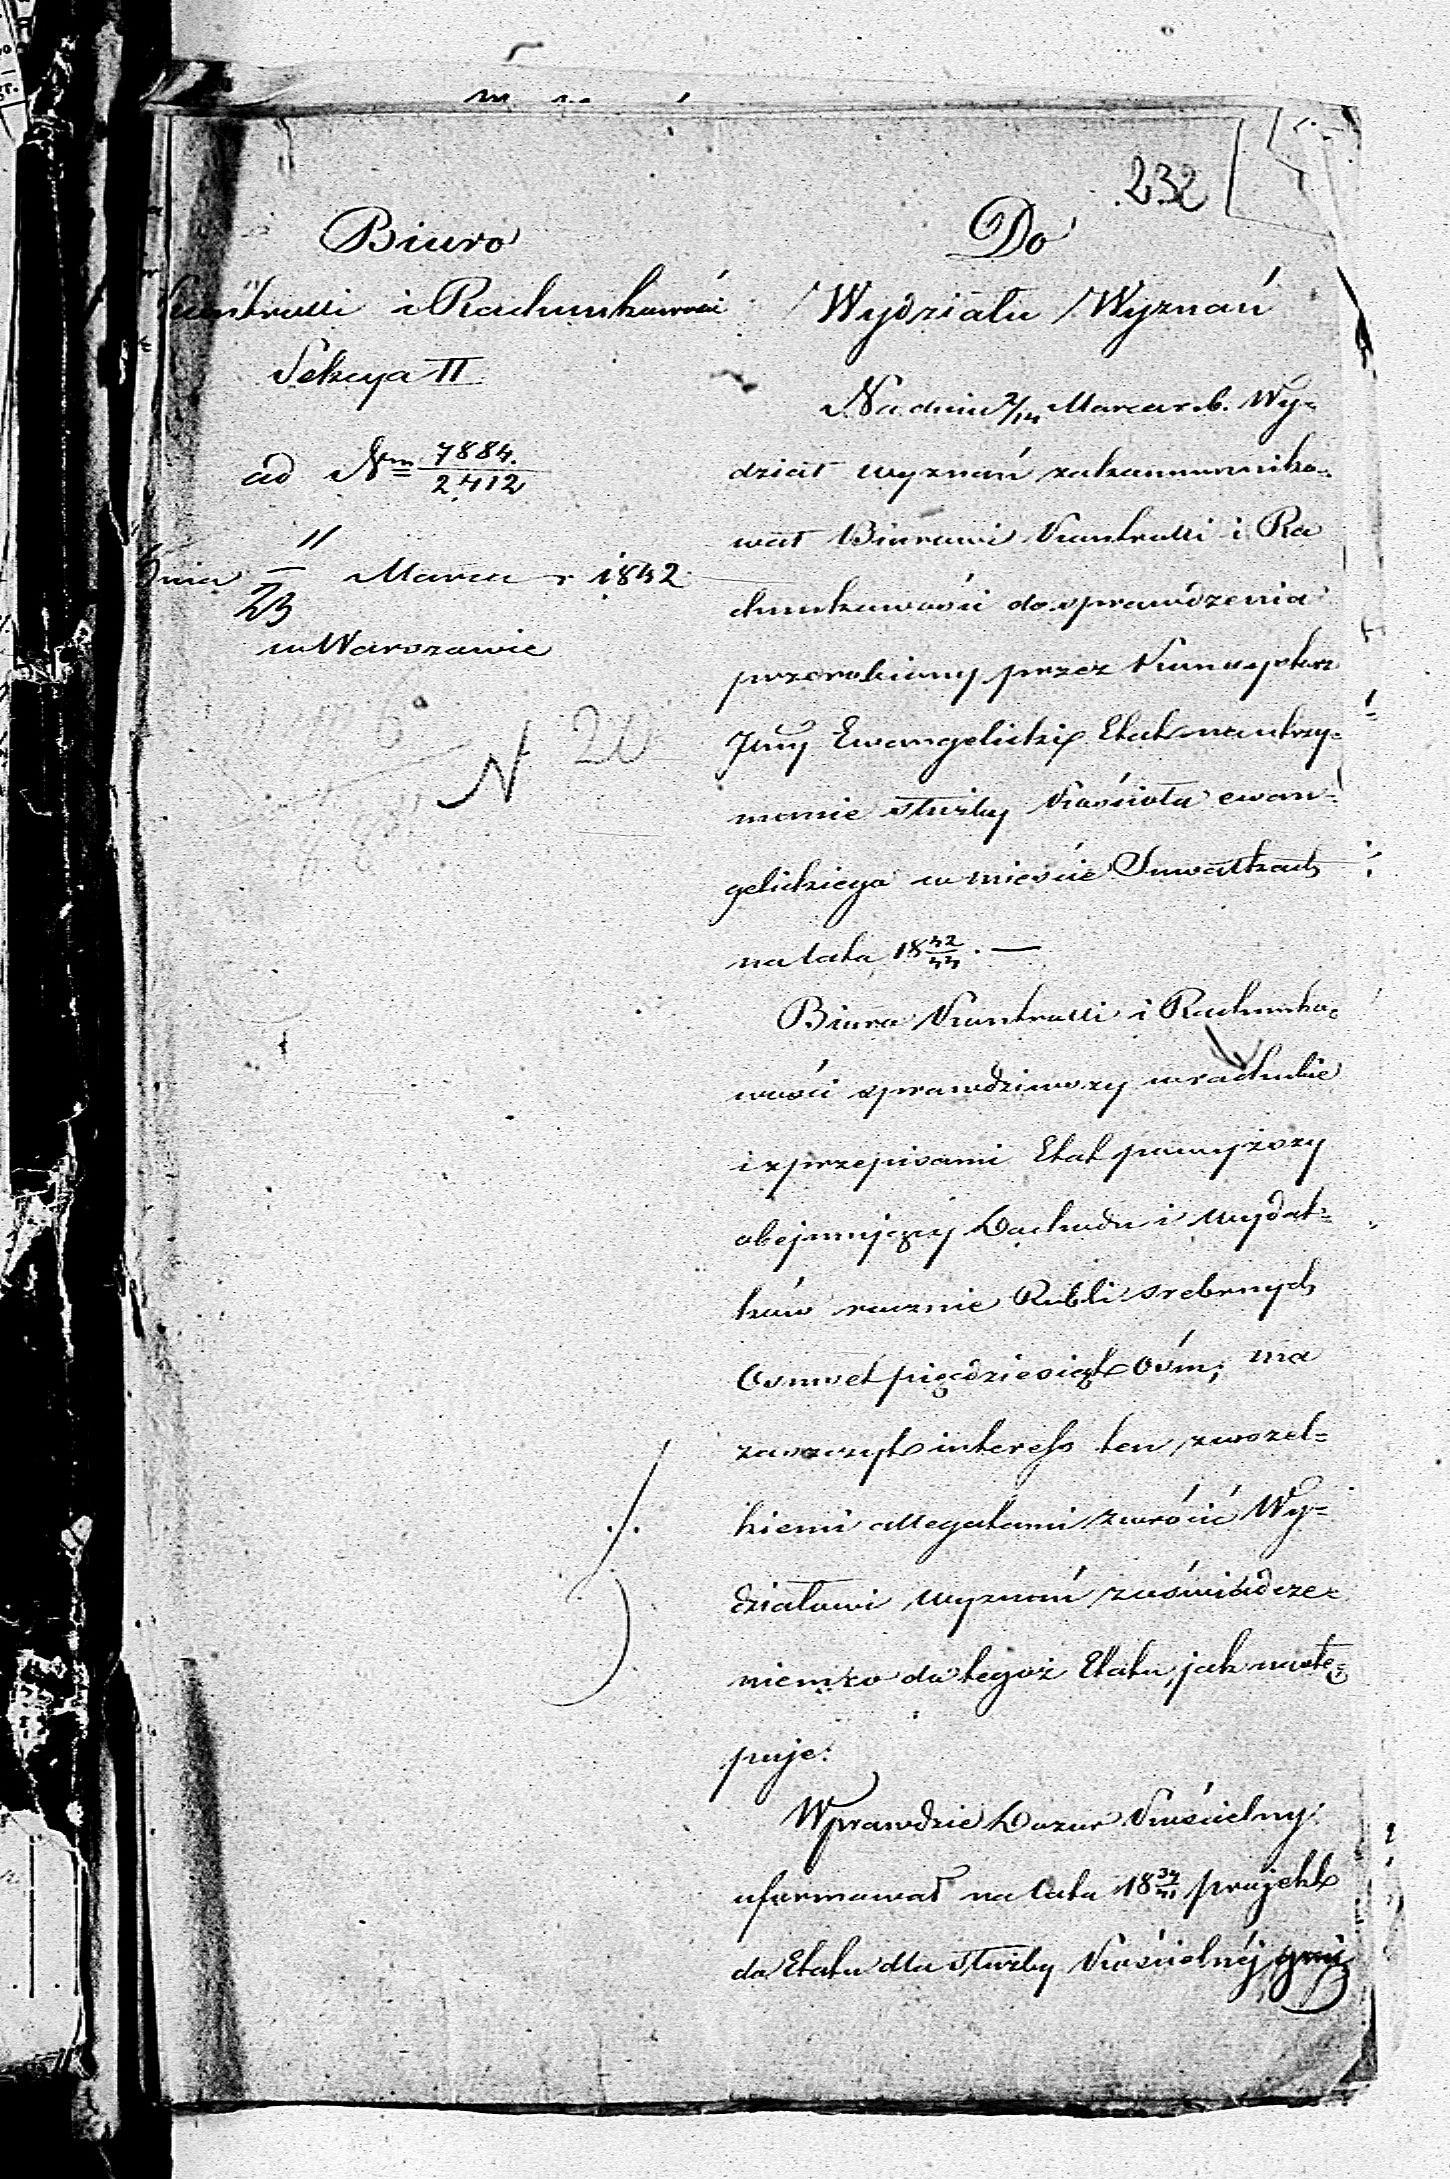 232
Biuro
Kontrolli i Rachunkowości
Sekcya II
ad Nm 7884./2412
Dnia 11/23 Marca r 1842
w Warszawie
N 20
Do
Wydziału Wyznań
Na dniu 2/14 Marca r. b. Wy-
dział wyznań zakommuniko-
wał Biurowi Kontrolli i Ra
chunkowości do sprawdzenia
przerobiony przez Konsystorz
Jlny Ewangelicki Etat na utrzy-
manie służby Kościoła ewan-
gelickiego w mieście Suwałkach
na lata 18 42/44. —
Biuro Kontrolli i Rachunko-
wości sprawdziwszy w rachubie
i z przepisami Etat powyższy
obejmujący Dochodu i wydat-
ków rocznie Rubli srebrnych
Osmset pięćdziesiąt ośm, ma
zaszczyt interess ten z wszel-
kiemi allegatami zwrócić Wy-
działowi wyznań z oświadcze-
niem co do tegoż Etatu, jak nastę-
puje:
Wprawdzie Dozór Kościelny
uformował na lata 18 39/41 projekt
do Etatu dla służby Kościelnéj